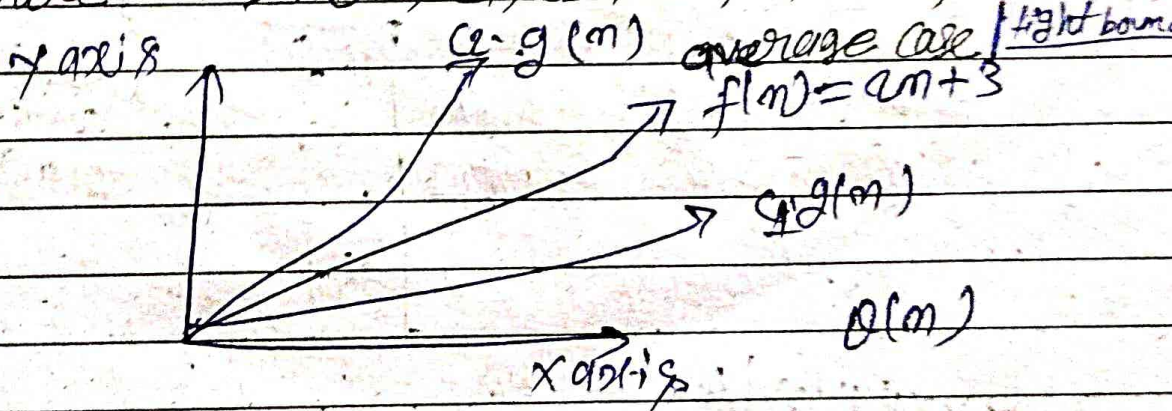 y axis
C2. g(n) average case / tight bound
f(n) = 2n+3
C1. g(n)
θ(n)
x axis